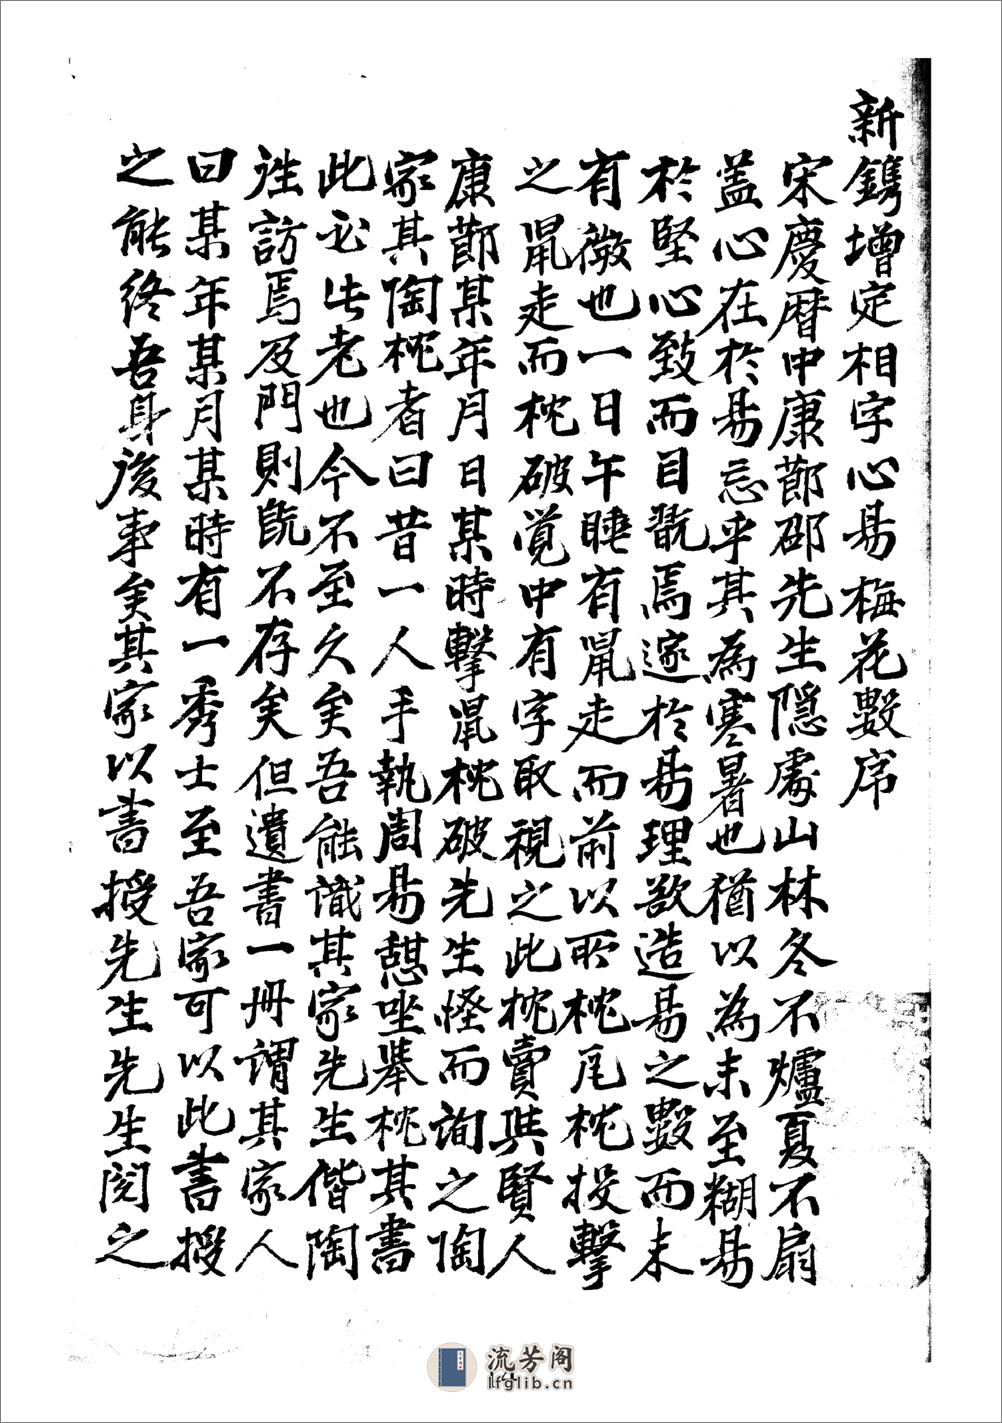 新鐫增定相字心易梅花數序
宋慶曆中康節邵先生隱處山林冬不爐夏不扇
蓋心在於易忘乎其為寒暑也猶以為未至糊易
於堅心致而目翫焉邃於易理欲造易之數而未
有徵也一日午睡有鼠走而前以所枕瓦枕投擊
之鼠走而枕破覺中有字取視之此枕賣與賢人
康節某年月日某時擊鼠枕破先生怪而詢之陶
家其陶枕者曰昔一人手執周易憇坐舉枕其書
此必此老也今不至久矣吾能識其家先生偕陶
往訪焉及門則旣不存矣但遺書一冊謂其家人
曰某年某月某時有一秀士至吾家可以此書授
之能終吾身後事矣其家以書授先生先生閱之
流芳阁
lfglib.cn